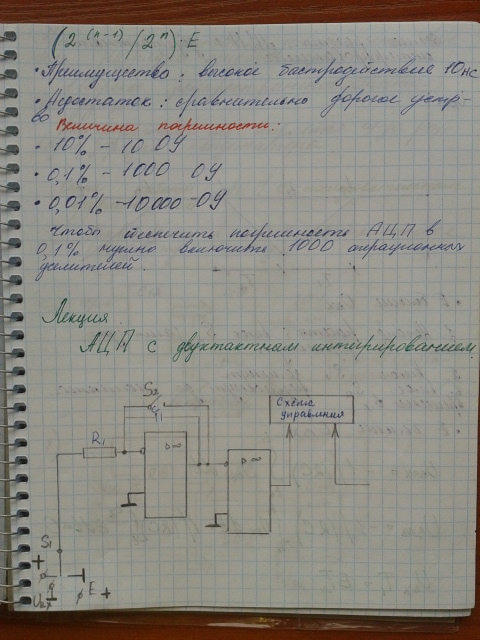 (2^(n-1) / 2^n) · E
• Преимущество: высокое быстродействие 10нс
• Недостаток: сравнительно дорогое устр-
во
Величина погрешности:
• 10% - 10 ОУ
• 0,1% - 1000 ОУ
• 0,01% - 10000 - ОУ
Чтоб обеспечить погрешность АЦП в
0,1% нужно включить 1000 операционных
усилителей.
Лекция
АЦП с двухтактным интегрированием.
S2
Схема
управления
R1
▷∞
▷∞
S1
+
Uвх
E +